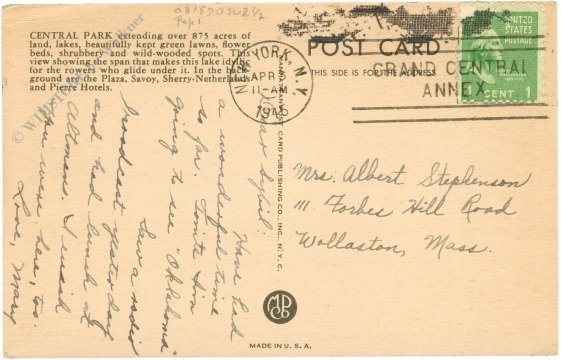 0315D0302 1/2
Pept
CENTRAL PARK extending over 875 acres of
land, lakes, beautifully kept green lawns, flower
beds, shrubbery and wild-wooded spots. This
view showing the span that makes this lake idyllic
for the rowers who glide under it. In the back
ground are the Plaza, Savoy, Sherry-Netherlands
and Pierre Hotels.
Have had
a wonderful time
so far. Tonite Am
going to see "Oklahoma"
Saw a radio
broadcast yesterday
and had lunch at
Altmans. I wish
you were here, too.
Love, Mary
MADE IN U. S. A.
POST CARD
THIS SIDE IS FOR THE ADDRESS
NEW YORK, N.Y.
APR 5
11-AM
1945
GRAND CENTRAL
ANNEX
UNITED
STATES
POSTAGE
CENT 1
Mrs. Albert Stephenson
111 Forbes Hill Road
Wollaston, Mass.